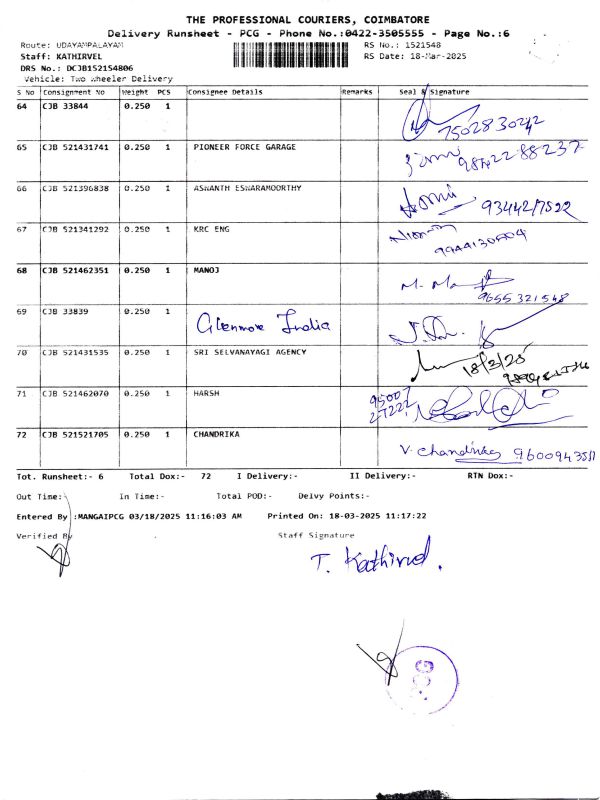 THE PROFESSIONAL COURIERS, COIMBATORE
Delivery Runsheet - PCG - Phone No.:0422-3505555 - Page No.:6
Route: UDAYAMPALAYAM RS No.: 1521548
Staff: KATHIRVEL RS Date: 18-Mar-2025
DRS No.: DCJB152154806
Vehicle: Two Wheeler Delivery
S No Consignment No Weight PCS Consignee Details Remarks Seal & Signature
64 CJB 33844 0.250 1
7502830242
65 CJB 521431741 0.250 1 PIONEER FORCE GARAGE
98422 88237
66 CJB 521396838 0.250 1 ASWANTH ESWARAMOORTHY
93442/7522
67 CJB 521341292 0.250 1 KRC ENG
68 CJB 521462351 0.250 1 MANOJ
9655 321548
69 CJB 33839 0.250 1 Glenmore India
70 CJB 521431535 0.250 1 SRI SELVANAYAGI AGENCY
18/3/25
71 CJB 521462070 0.250 1 HARSH
95007
27222
72 CJB 521521705 0.250 1 CHANDRIKA
V. Chandrika 9600943511
Tot. Runsheet:- 6 Total Dox:- 72 I Delivery:- II Delivery:- RTN Dox:-
Out Time: In Time:- Total POD:- Delvy Points:-
Entered By :MANGAIPCG 03/18/2025 11:16:03 AM Printed On: 18-03-2025 11:17:22
Verified By Staff Signature
T. Kathirvel.